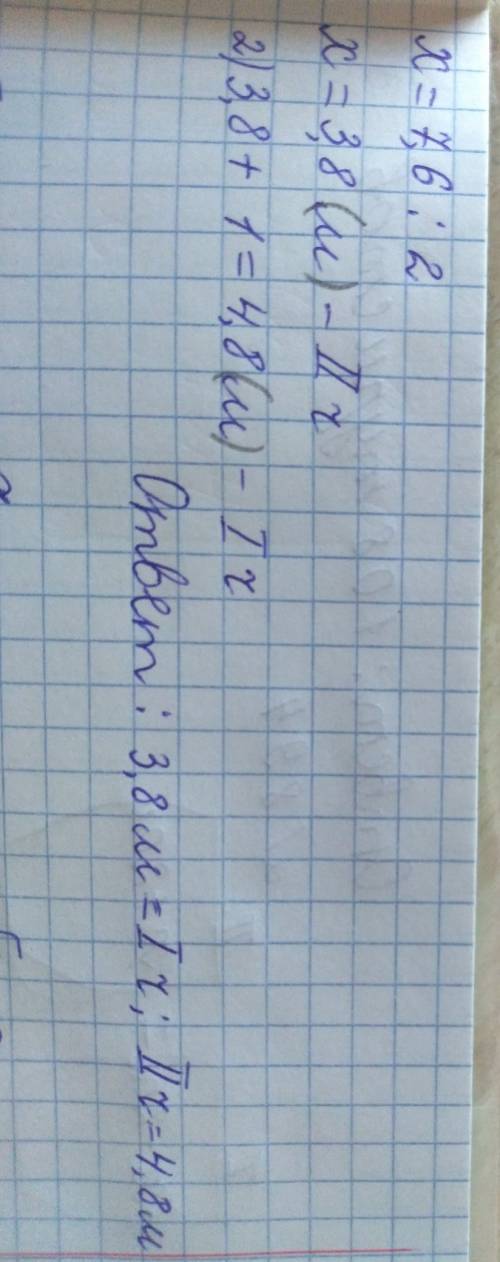 x = 7,6 : 2
x = 3,8 (м) - II ч
2) 3,8 + 1 = 4,8 (м) - I ч
Ответ: 3,8 м = I ч; II ч = 4,8 м